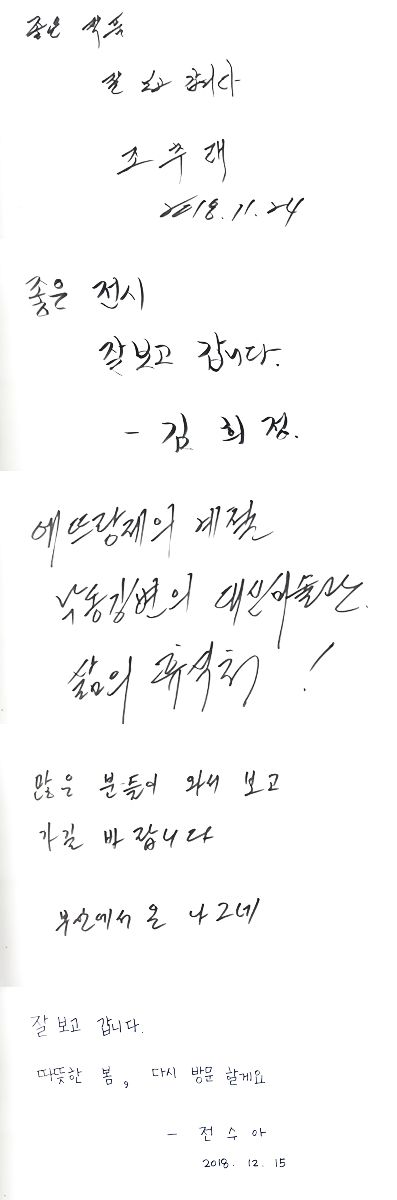 좋은 작품
잘 보고 갑니다
조수래
2018.11.24
좋은 전시
잘보고 갑니다.
- 김희정.
에뜨랑제의 계절
낙동강변의 대신미술관.
삶의 휴식처!
많은 분들이 와서 보고
가길 바랍니다
부산에서 온 나그네
잘 보고 갑니다.
따뜻한 봄, 다시 방문 할게요
- 전수아
2018. 12. 15